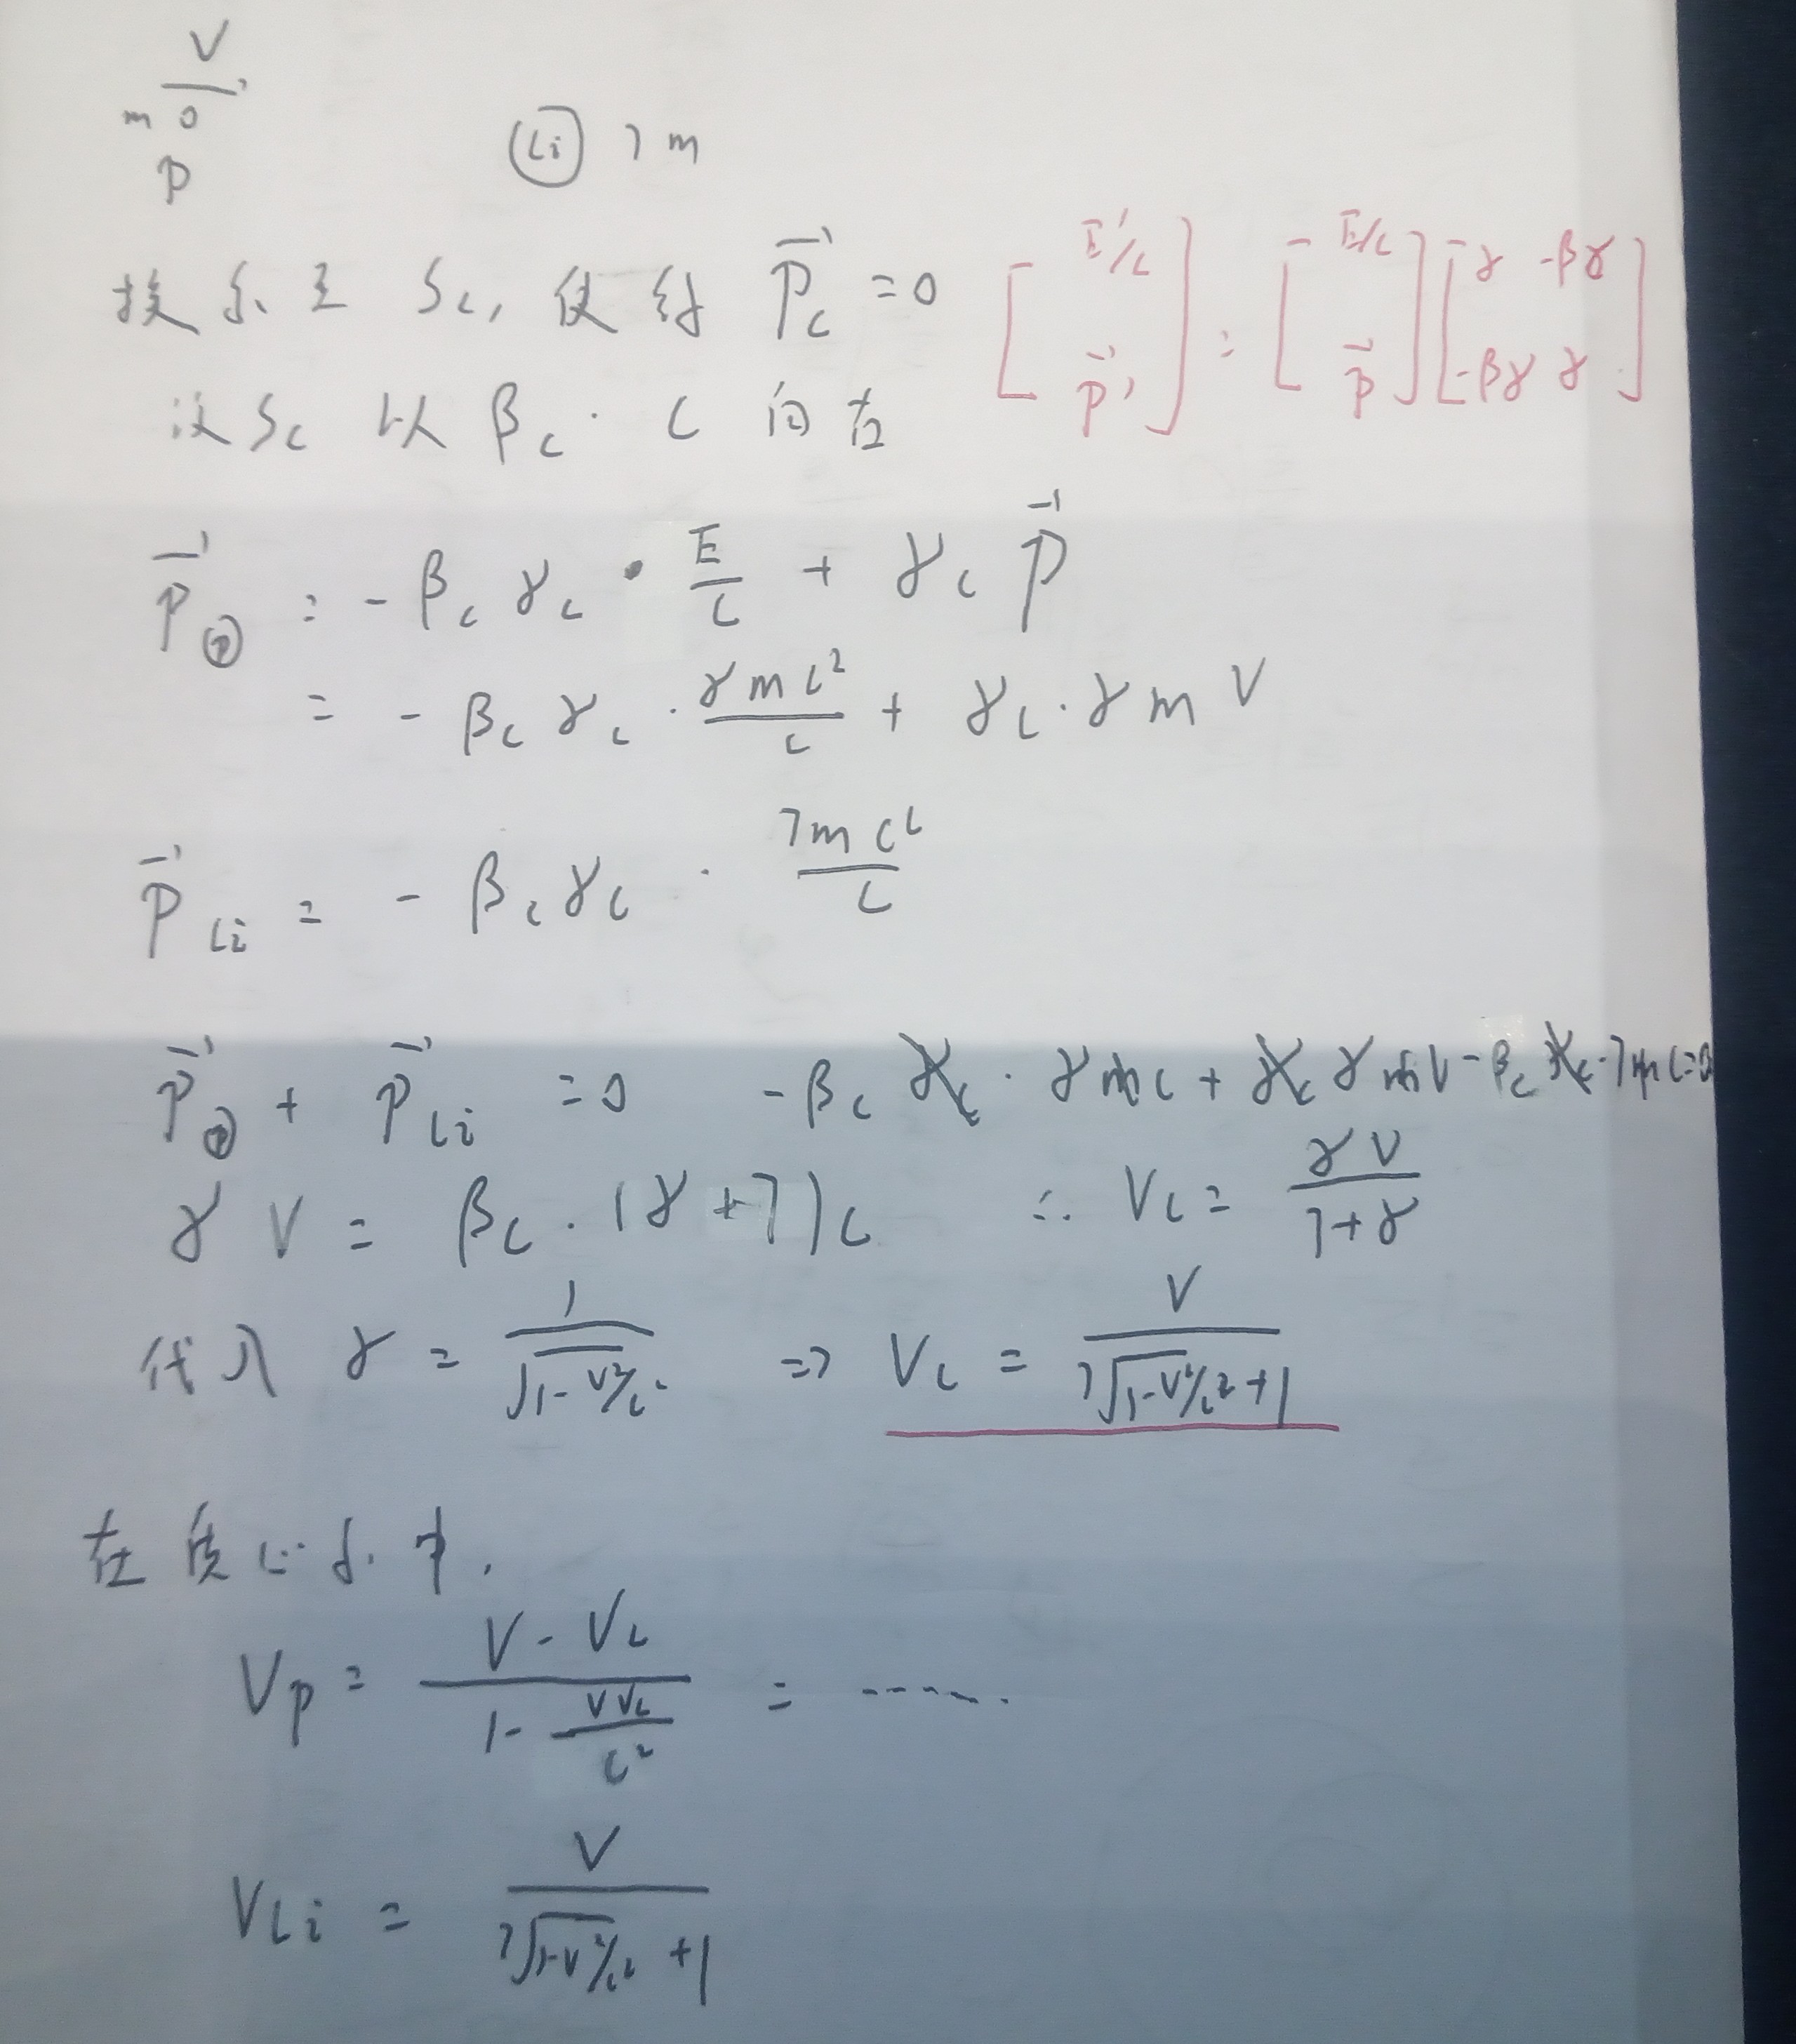 V
m o
p
Li 7m
换系至 Sc, 使得 P⃗c = 0
[E'/c P⃗'] = [E/c P⃗] [γ -βγ -βγ γ]
设 Sc 以 βc · c 向右
P⃗ⓟ = - βc γc · E/c + γc P⃗
= - βc γc · γmc²/c + γc · γ m V
P⃗Li = - βc γc · 7mc²/c
P⃗ⓟ + P⃗Li = 0 - βc γc · γmc + γc γmV - βc γc · 7mc = 0
γ V = βc · (γ+7) c ∴ Vc = γV/(7+γ)
代入 γ = 1/√(1-V²/c²) => Vc = V/(7√(1-V²/c²)+1)
在质心系中,
Vp = (V-Vc)/(1-VVc/c²) = ......
VLi = V/(7√(1-V²/c²)+1)